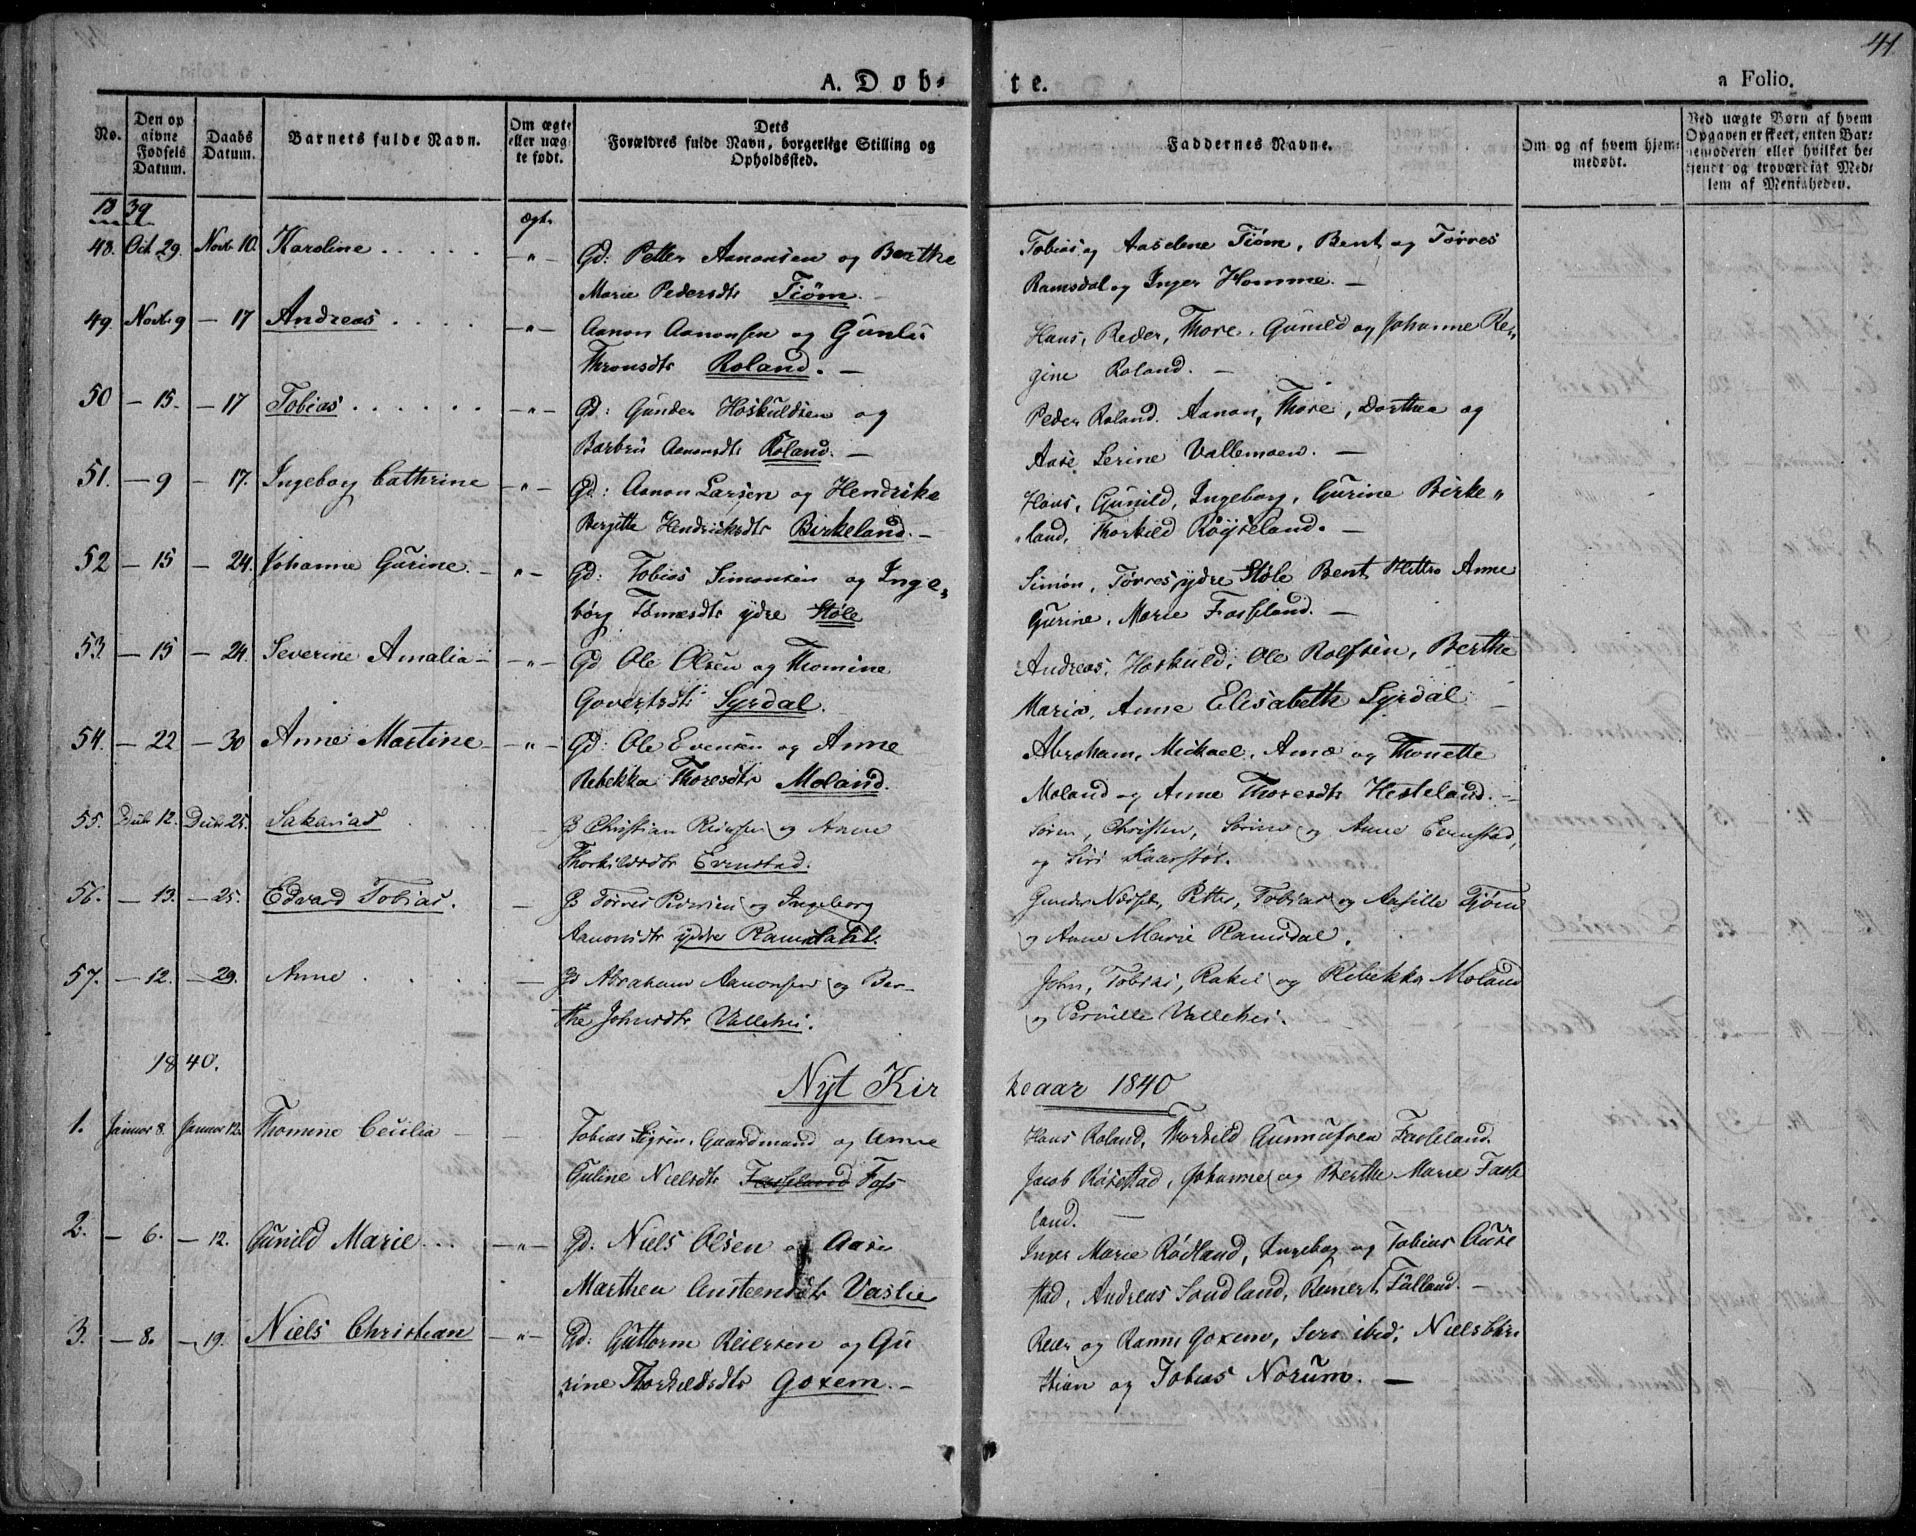 41
A. Døb-te.
a Folio.
No.
Den opgivne Fødsels Datum.
Daabs Datum.
Barnets fulde Navn.
Om ægte eller uægte født.
Dets Forældres fulde Navn, borgerlige Stilling og Opholdssted.
Faddernes Navne.
Om og af hvem hjemmedøbt.
Ved uægte Børn af hvem Opgaven er skeet, enten Barnemoderen eller hvilket bekjendt og troværdigt Medlem af Menigheden.
1839
ægt.
48. Oct 29. Novb 10. Karoline . . . . . -"- Gd: Petter Aanonsen og Berthe Tobias og Aaselene Tiøm, Bent og Tørres
Marie Pedersdtr Tiøm. - Ramsdal og Inger Homme. -
49. Novb. 9 - 17 Andreas . . . . -"- Aanon Aanonsen og Gunild Hans, Peder, Thore, Gunild og Johanne Re-
Thronsdtr Roland. - gine Roland. -
50 - 15. - 17 Tobias . . . . . . -"- Gd: Gunder Hoskuldsen og Peder Roland. Aanon, Thore, Dorthea og
Barbru Aanonsdtr Roland. - Aase Serine Vallemoen. -
51. - 9 - 17. Ingeborg Cathrine -"- Gd: Aanon Larsen og Hendrike Hans, Gunild, Ingeborg, Gurine Birke"
Bergitte Hendrichsdtr Birkeland. - "land, Thorkild Røyseland. -
52 - 15 - 24. Johanne Gurine. - "- Gd: Tobias Simonsen og Inge" Simon, Tørres ydre Støle Bent Anne
borg Tønnesdtr ydre Støle Gurine, Marie Fasseland. -
53. - 15 - 24. Severine Amalia - -"- Gd Ole Olsen og Thomine Andreas, Hoskuld, Ole Rolfsen, Berthe
Govertsdtr Syrdal. Maria, Anne Elisabeth Syrdal -
54. - 22 - 30 Anne Martine -"- Gd: Ole Evensen og Anne Abraham, Michael, Anne og Thonette
Rebekka Thoresdtr Moland. Moland og Anne Thoresdtr Hesteland. -
55. Decbr 12. Decbr 25. Sakarias - G Christian Reiersen og Anne Søren, Christen, Sørine og Anne Evenstad,
Thorkildsdtr Evenstad. og Siri Kaarstøl.
56. - 13. - 25. Edvard Tobias. - G Tørres Pedersen og Ingeborg Gunder Nødset, Petter, Tobias og Aasille Tjøm
Aanonsdtr ydre Ramsdahl. og Anne Marie Ramsdal.
57. - 12. - 29. Anne . . . - G Abraham Aanonsen og Ber- John, Tobias, Rakel og Rebekka Moland
the Johnsdtr Vallehei. og Pernille Vallehei.
1840.
Nyt Kirkeaar 1840
1. Januar 8. Januar 12. Thomine Cecilia - - Tobias Gaardmand og Anne Hans Roland, Thorkild Gunnufsen Fasseland.
Guline Nielsdtr Fasseland Foss Jacob Røsestad, Johanne og Berthe Marie Fasse
land.
2. - 6. - 12. Gunild Marie . . . -"- Gd: Niels Olsen og Aase Inger Marie Rødland, Ingeborg og Tobias Aure
Marthea Austeensdtr Vaslie stad, Andreas Sondland, Reinert Fälland. -
3. - 8. - 19. Niels Christian -"- Gd: Guttorm Reiersen og Gu Reier og Ranni Goxem, Seri ibid, Niels Chri
rine Thorkildsdtr Goxem. - stian og Tobias Norum. -